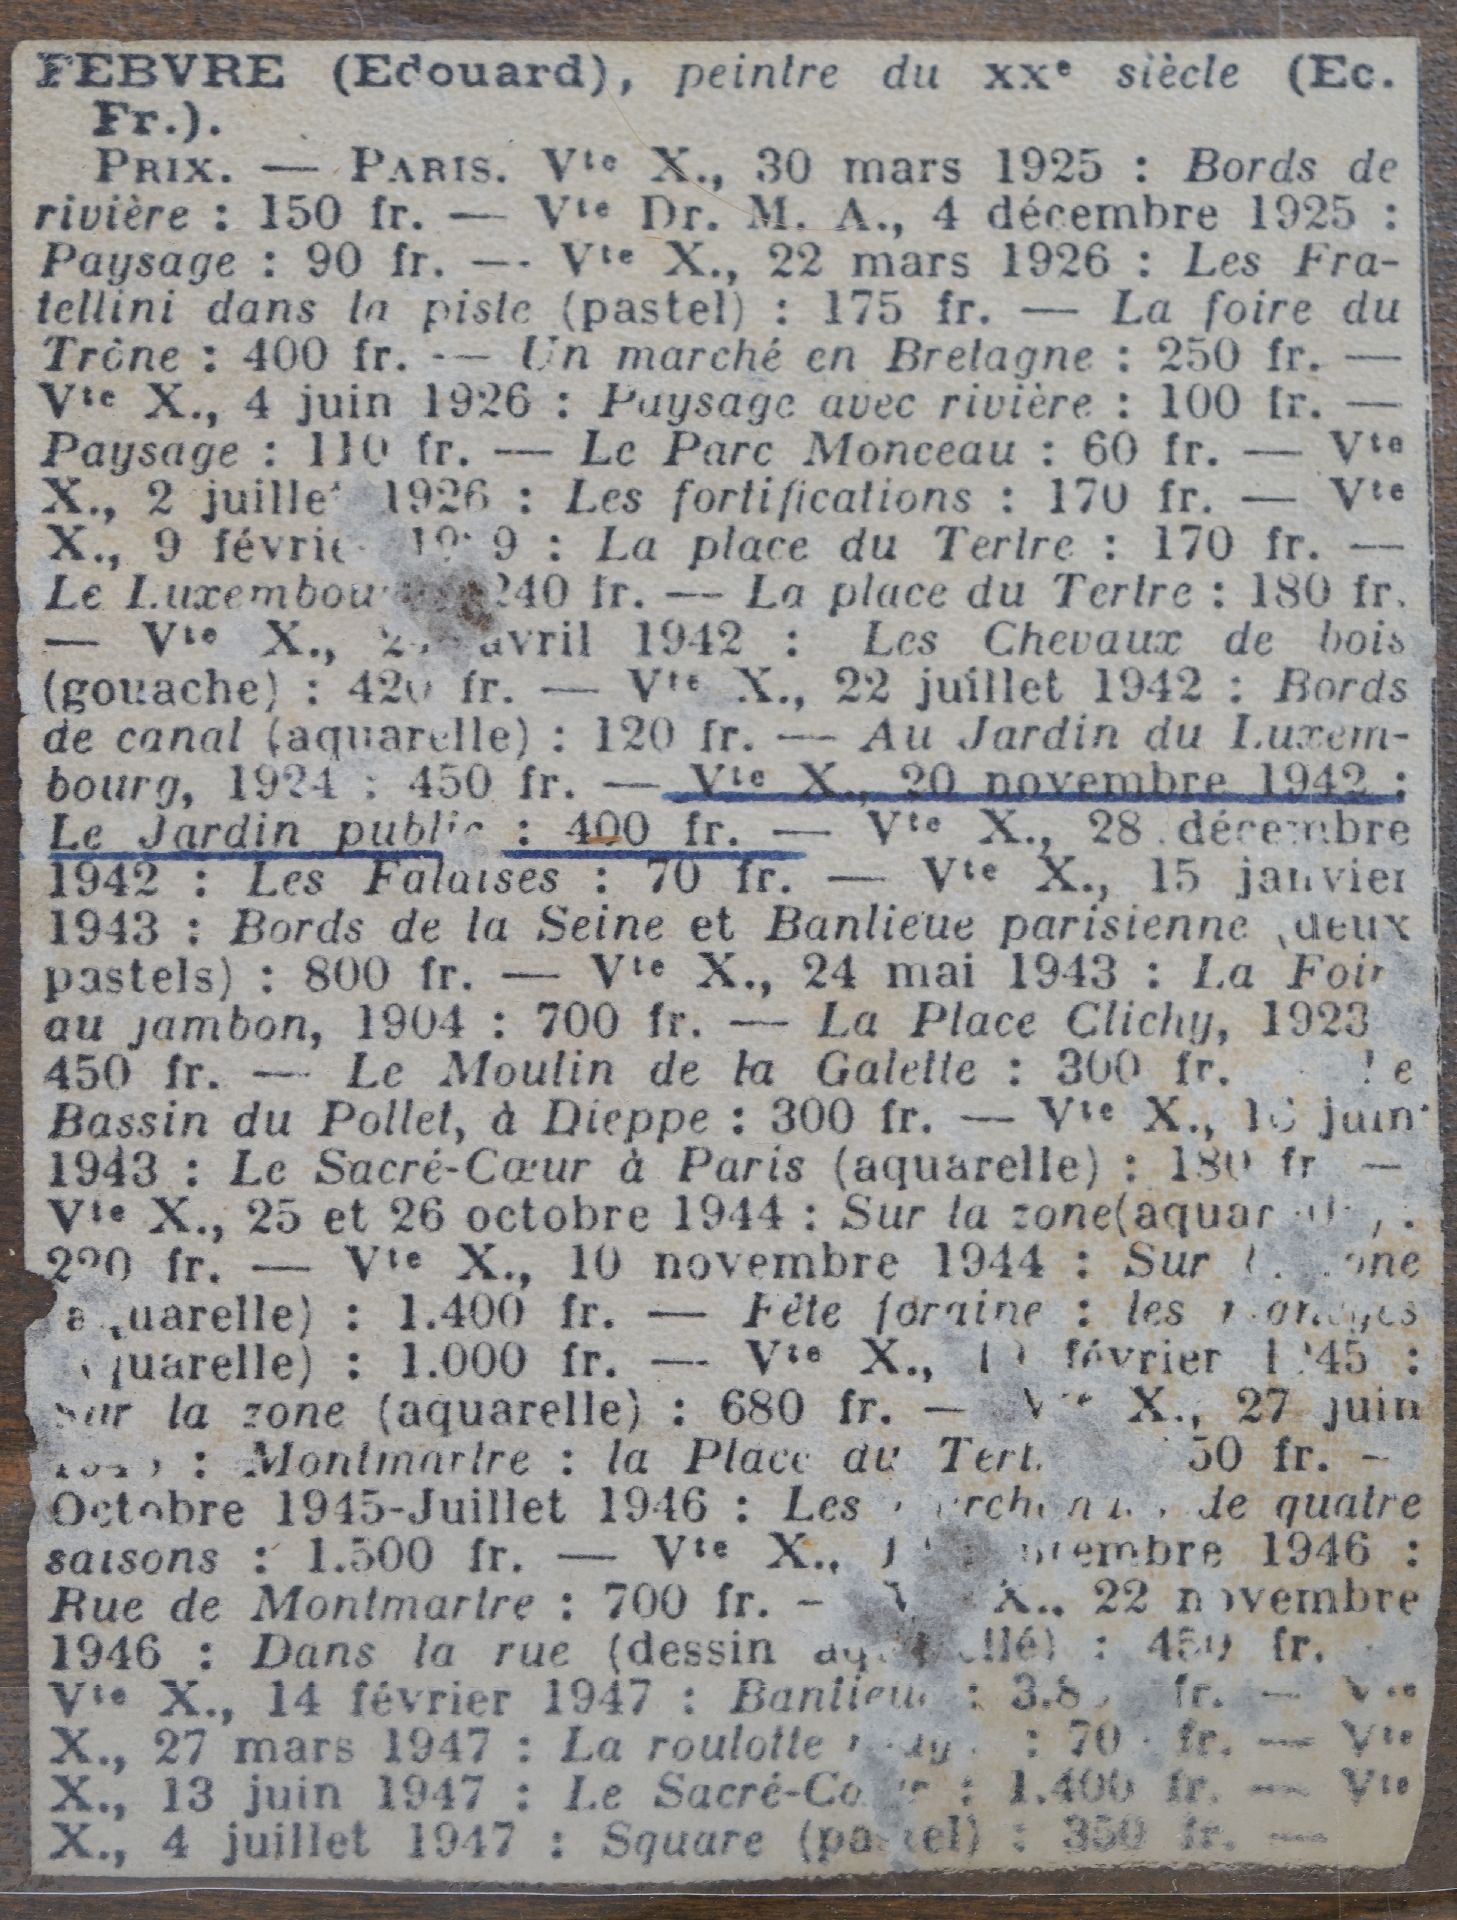 FEBVRE (Edouard), peintre du XXe siècle (Ec.
Fr.).
PRIX. — PARIS. Vte X., 30 mars 1925 : Bords de
rivière : 150 fr. — Vte Dr. M. A., 4 décembre 1925 :
Paysage : 90 fr. — Vte X., 22 mars 1926 : Les Fra-
tellini dans la piste (pastel) : 175 fr. — La foire du
Trône : 400 fr. — Un marché en Bretagne : 250 fr. —
Vte X., 4 juin 1926 : Paysage avec rivière : 100 fr. —
Paysage : 110 fr. — Le Parc Monceau : 60 fr. — Vte
X., 2 juillet 1926 : Les fortifications : 170 fr. — Vte
X., 9 février : La place du Tertre : 170 fr. —
Le Luxembourg 240 fr. — La place du Tertre : 180 fr.
— Vte X., avril 1942 : Les Chevaux de bois
(gouache) : 420 fr. — Vte X., 22 juillet 1942 : Bords
de canal (aquarelle) : 120 fr. — Au Jardin du Luxem-
bourg, 1924 : 450 fr. — Vte X., 20 novembre 1942 :
Le Jardin public : 400 fr. — Vte X., 28 décembre
1942 : Les Falaises : 70 fr. — Vte X., 15 janvier
1943 : Bords de la Seine et Banlieue parisienne (deux
pastels) : 800 fr. — Vte X., 24 mai 1943 : La Foire
au jambon, 1904 : 700 fr. — La Place Clichy, 1923
450 fr. — Le Moulin de la Galette : 300 fr. Le
Bassin du Pollet, à Dieppe : 300 fr. — Vte X., juin
1943 : Le Sacré-Cœur à Paris (aquarelle) : 180 fr —
Vte X., 25 et 26 octobre 1944 : Sur la zone (aquarelle) :
220 fr. — Vte X., 10 novembre 1944 : Sur la zone
(aquarelle) : 1.400 fr. — Fête foraine : les manèges
(aquarelle) : 1.000 fr. — Vte X., février 1945 :
Sur la zone (aquarelle) : 680 fr. — Vte X., 27 juin
: Montmartre : la Place du Tertre fr. —
Octobre 1945-Juillet 1946 : Les marchandes de quatre
saisons : 1.500 fr. — Vte X., 1946 :
Rue de Montmartre : 700 fr. — Vte X., 22 novembre
1946 : Dans la rue (dessin aquarellé) : 450 fr.
Vte X., 14 février 1947 : Banlieue : fr. — Vte
X., 27 mars 1947 : La roulotte rouge : fr. — Vte
X., 13 juin 1947 : Le Sacré-Cœur : 1.400 fr. — Vte
X., 4 juillet 1947 : Square (pastel) : 350 fr. —